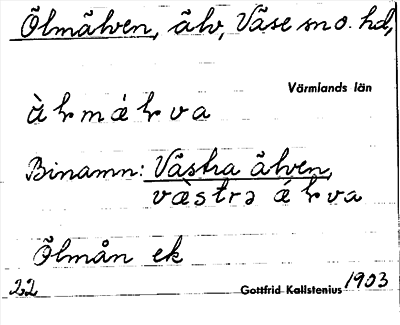 Ölmälven, älv, Väse sn o. hd,
Värmlands län
Binamn: Västra älven,
Ölmån ek
22 Gottfrid Kallstenius 1903